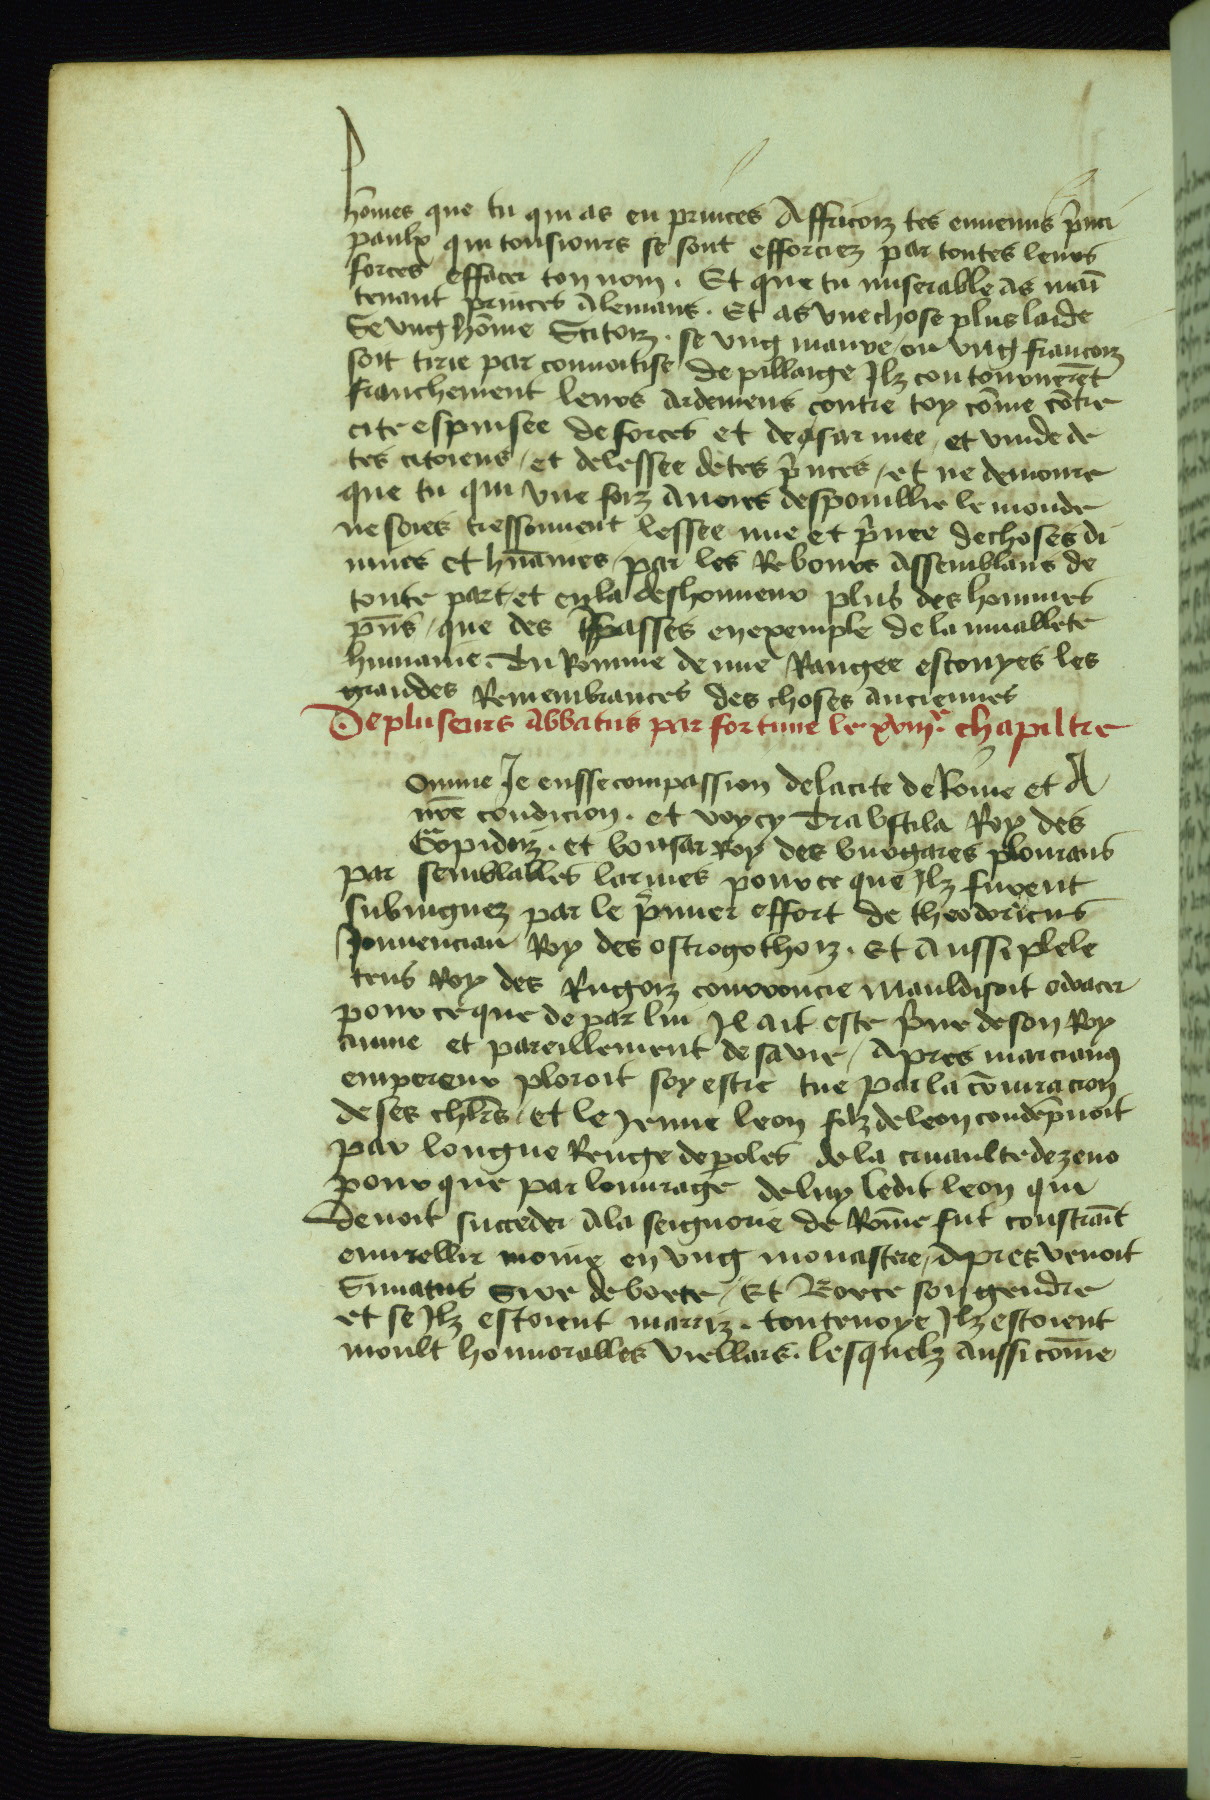 hōmes que tu qui as eu princes Affricoiz tes ennemis p̄nci
paulx qui tousiours se sont efforciez par toutes leurs
forces effacer ton nom . Et que tu miserable as mai᷑
tenant princes Alemans . Et as une chose plus laide
Se ung hōme Scitoiz . se ung maure / ou ung francoiz
soit tirie par conuoitise de pillaige Ilz contourneret̄
franchement leurs ardemens contre toy cōme cōtre
cite espuisee de forces et desarmee , et vuide de
tes citoiens / et delessee de tes p̄nces , et ne demoure
que tu qui une foiz auoies despouillie le monde
ne soies tressouuent lessee nue et p̄uee de choses di
uines et hūaines , par les Rebours Assemblans de
toute part , et en la deshonneur plus des hommes
pn̄s , que des tpasses en exemple de la muablete
humaine . Tu Romme de nue Rangee escouyes les
grandes Remembrances des choses anciennes
De pluseurs abbatus par fortune le xviije . chapiltre
Omme Je eusse compassion de la cite de Rōme et A
nr̄e condicion . et voycy Trabstila Roy des
Gepidoiz . et bousar roy des burgares plourans
par semblables larmes pour ce que Ilz furent
subiuguez par le p̄mier effort de theodoricus
Jouuencian Roy des ostrogothoiz . Et Aussi plele
teus Roy des Rugoiz courroucie mauldisoit odoacer
pour ce que de par lui Il ait este p̄ue de son Roy
aume et pareillement de sa vie / Apres marcianus
empereur ploroit soy estre tue par la cōiuracion
de ses chl̄rs , et le jenne leon filz de leon condēpnoit
par longue Renge de paroles de la cruaulte de zeno
pour que par louurage de luy ledit leon qui
deuoit succeder a la seignorie de Rōme fut constrai᷑t
enuiellir moine en ung monastere , Apres venoit
Simatus sire de boece , Et Boece son gendre
et se Ilz estoient marriz . toutevoye Ilz estoient
moult honnorables viellars . lesquelz aussi cōme